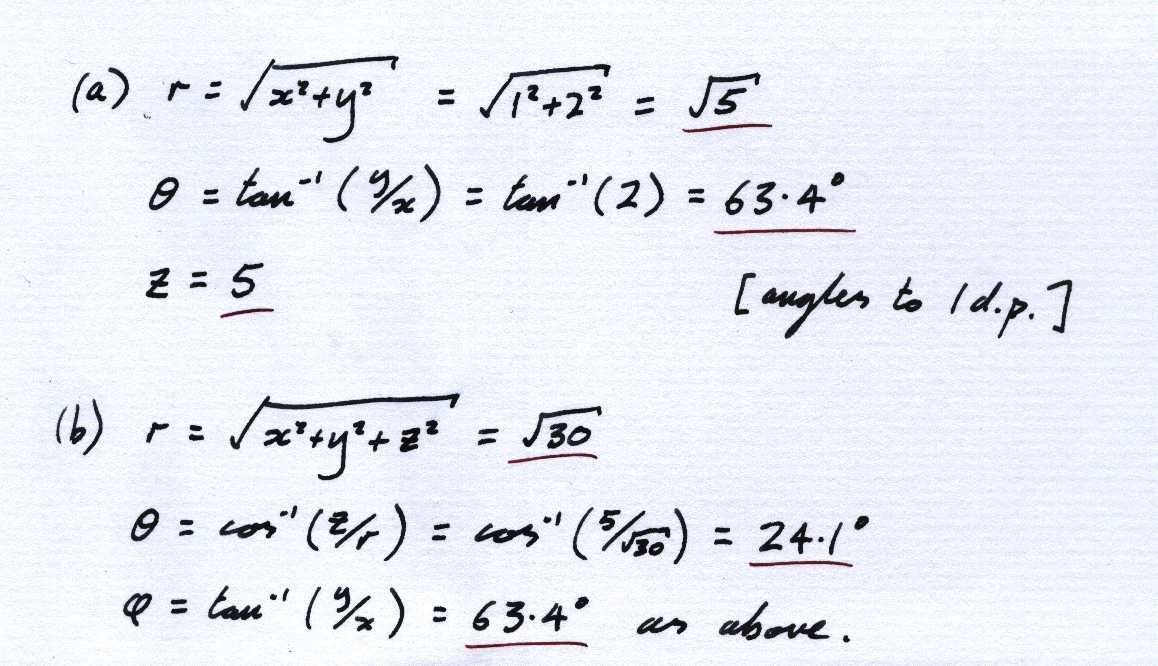 (a) r = √(x²+y²) = √(1²+2²) = √5
θ = tan⁻¹ (y/x) = tan⁻¹(2) = 63·4°
z = 5
[angles to 1 d.p.]
(b) r = √(x²+y²+z²) = √30
θ = cos⁻¹ (z/r) = cos⁻¹ (5/√30) = 24·1°
φ = tan⁻¹ (y/x) = 63·4° as above.